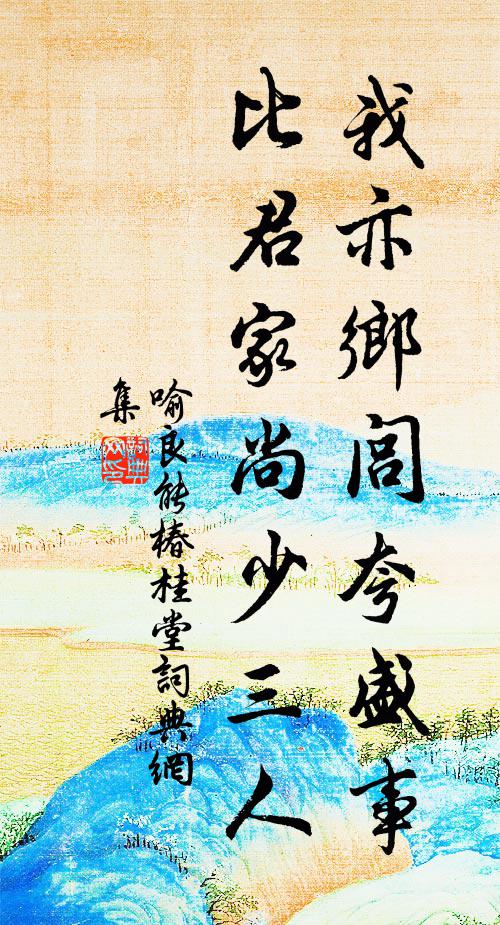 我亦鄉閭夸盛事
比君家尚少三人
喻良能椿桂堂詞典網
集